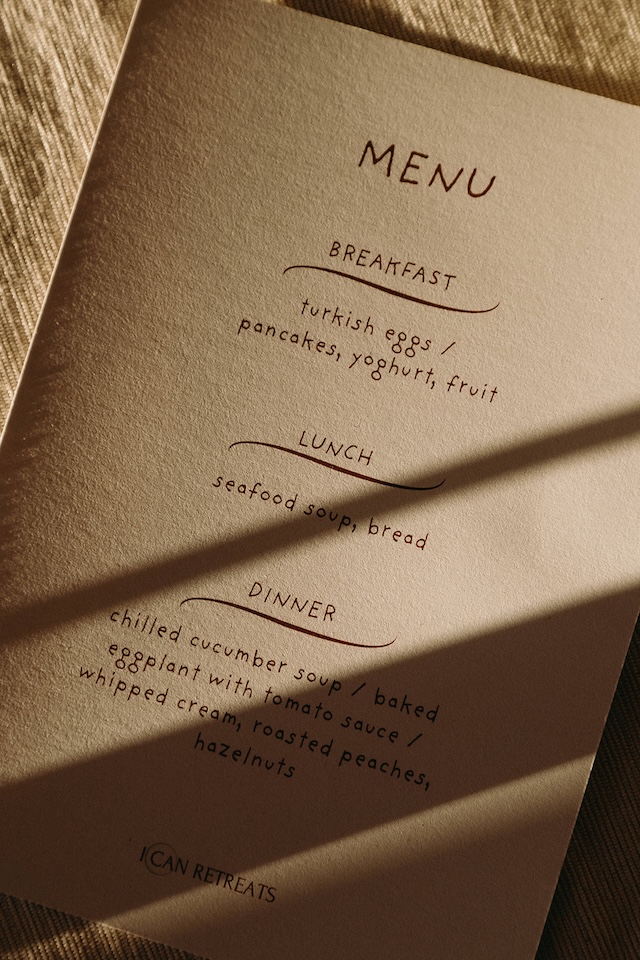 MENU
BREAKFAST
turkish eggs /
pancakes, yoghurt, fruit
LUNCH
seafood soup, bread
DINNER
chilled cucumber soup / baked
eggplant with tomato sauce /
whipped cream, roasted peaches,
hazelnuts
I CAN RETREATS